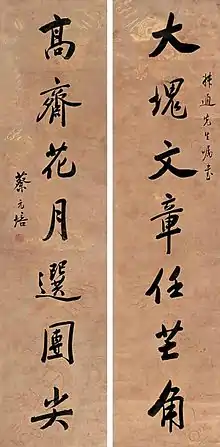 通先生嘱書
大塊文章任芒角
高齋花月選團尖
蔡元培